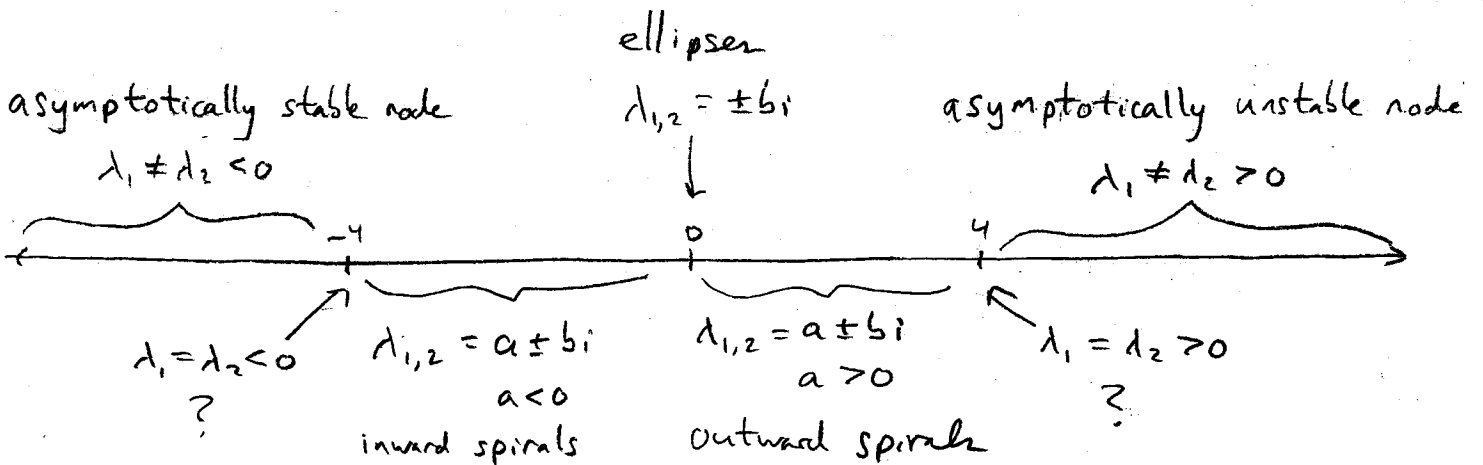 ellipses
asymptotically stable node
λ₁,₂ = ±bi
asymptotically unstable node
λ₁ ≠ λ₂ < 0
λ₁ ≠ λ₂ > 0
-4
0
4
λ₁ = λ₂ < 0
?
λ₁,₂ = a ± bi
a < 0
inward spirals
λ₁,₂ = a ± bi
a > 0
outward spirals
λ₁ = λ₂ > 0
?